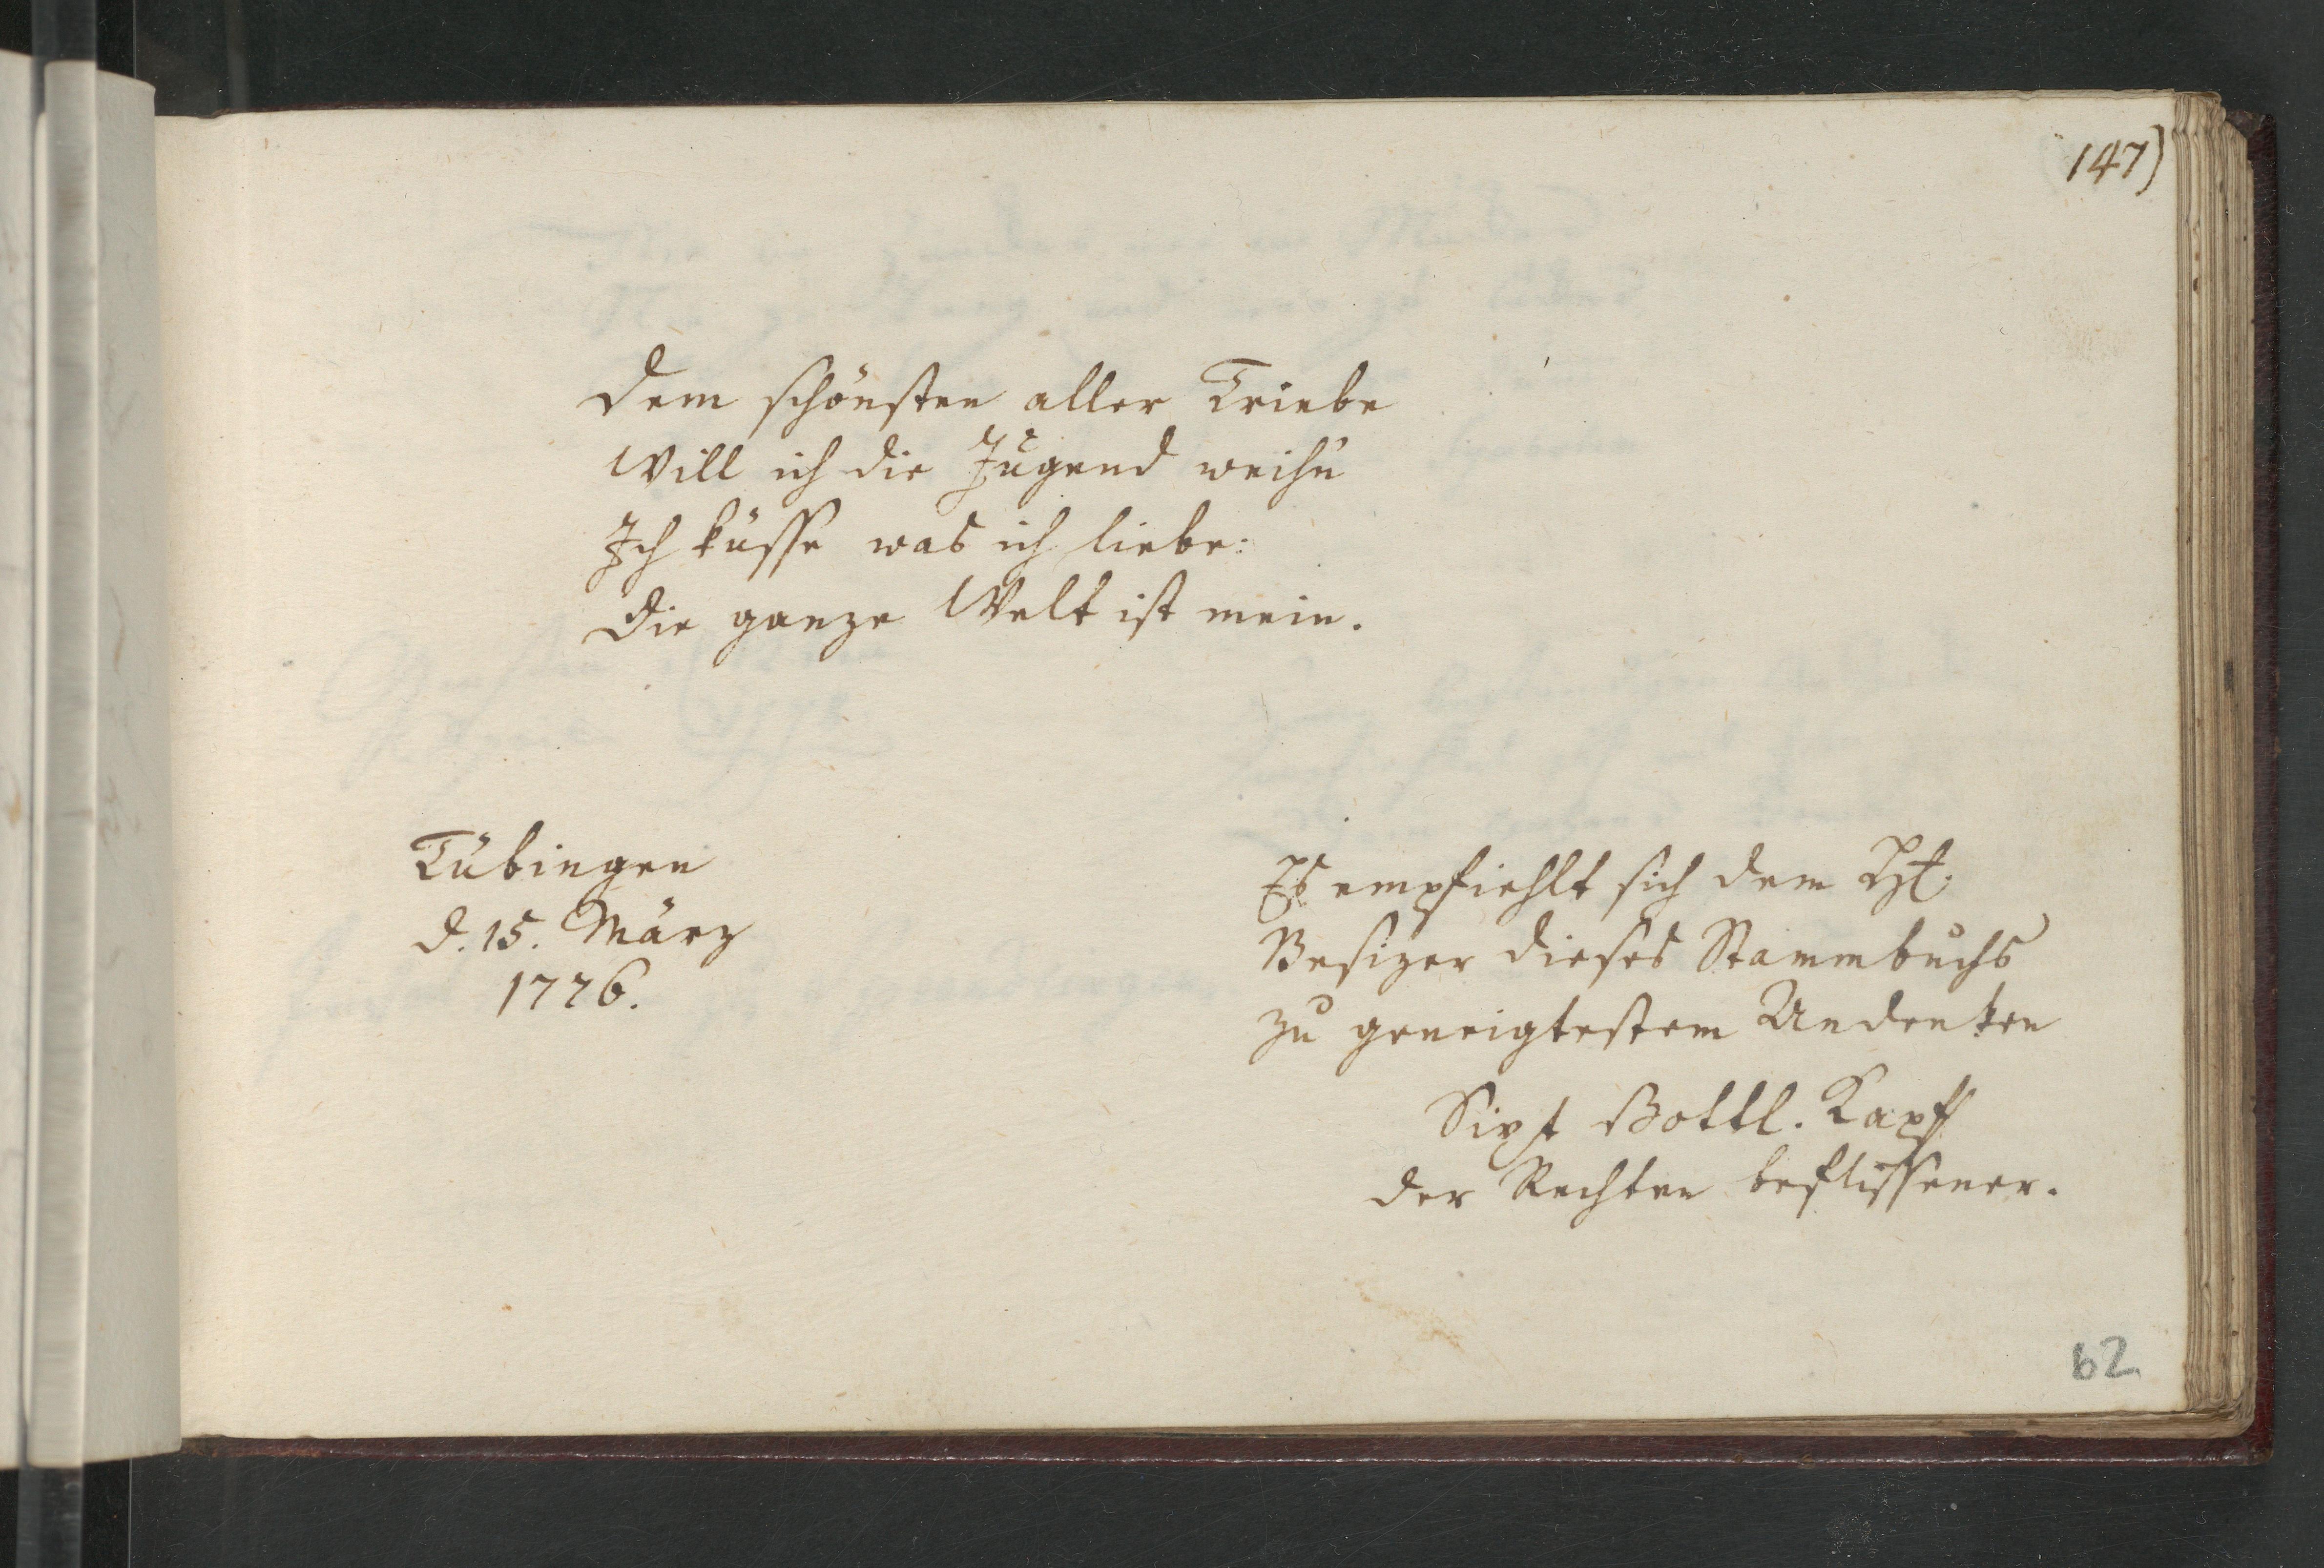 147)
Dem schönsten aller Triebe
Will ich die Jugend weihn
Ich küsse was ich liebe:
Die ganze Welt ist mein.
Tübingen
d. 15. März
1776.
Es empfiehlt sich dem H.
Besizer dieses Stammbuchs
zu geneigtestem Andenken
Sixt Gottl. Kapf
der Rechten beflissener.
62